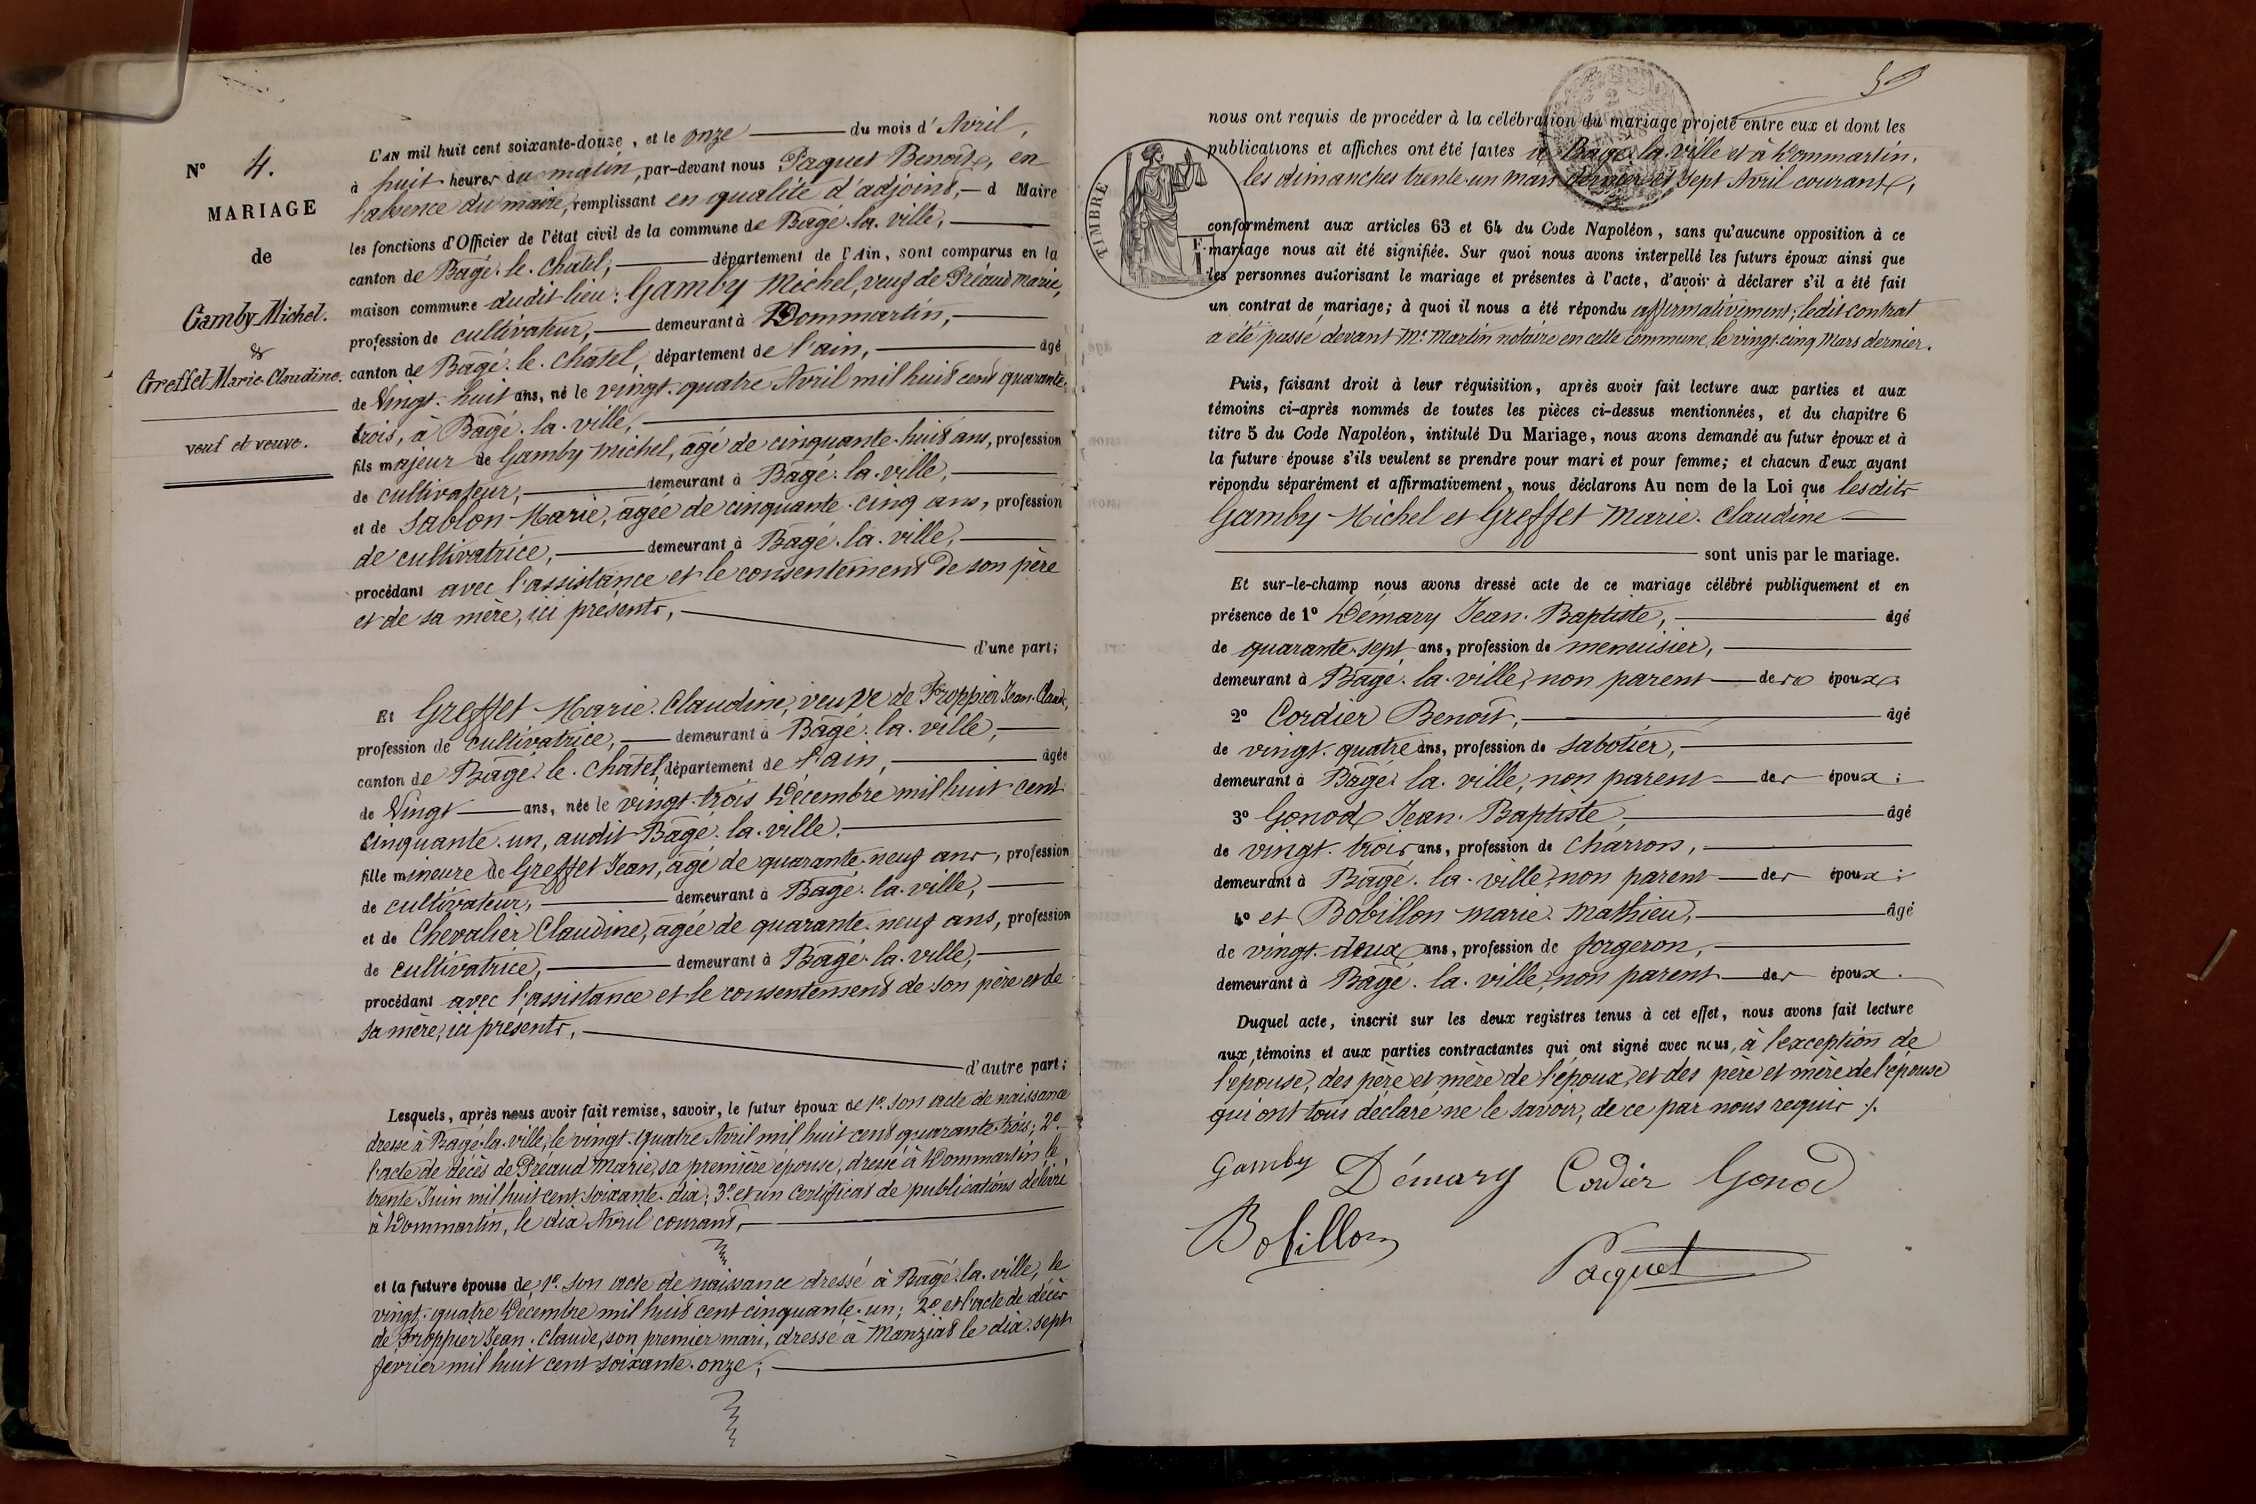 N° 4.
MARIAGE
de
Gamby Michel.
&
Greffet Marie Claudine.
veuf et veuve.
L'AN mil huit cent soixante-douze, et le onze du mois d'Avril,
à huit heures du matin, par-devant nous Paquet Benoit, en
l'absence du maire, remplissant en qualité d'adjoint, d Maire
les fonctions d'Officier de l'état civil de la commune de Bâgé-la-ville,
canton de Bâgé-le-Châtel, département de l'Ain, sont comparus en la
maison commune dudit lieu: Gamby Michel, veuf de Préaud Marie,
profession de cultivateur, demeurant à Dommartin,
canton de Bâgé-le-Châtel, département de l'ain, âgé
de Vingt-huit ans, né le vingt-quatre Avril mil huit cent quarante-
trois, à Bâgé-la-ville,
fils majeur de Gamby Michel, âgé de cinquante-huit ans, profession
de cultivateur, demeurant à Bâgé-la-ville,
et de Sablon Marie, âgée de cinquante-cinq ans, profession
de cultivatrice, demeurant à Bâgé-la-ville,
procédant avec l'assistance et le consentement de son père
et de sa mère, ici présents,
d'une part;
Et Greffet Marie-Claudine, veuve de Froppier Jean-Claude,
profession de cultivatrice, demeurant à Bâgé-la-ville,
canton de Bâgé-le-Châtel, département de l'ain, âgée
de Vingt ans, née le vingt-trois Décembre mil huit cent
cinquante-un, audit Bâgé-la-ville,
fille mineure de Greffet Jean, âgé de quarante-neuf ans, profession
de cultivateur, demeurant à Bâgé-la-ville,
et de Chevalier Claudine, âgée de quarante-neuf ans, profession
de cultivatrice, demeurant à Bâgé-la-ville,
procédant avec l'assistance et le consentement de son père et de
sa mère, ici présents,
d'autre part;
Lesquels, après nous avoir fait remise, savoir, le futur époux de 1° son acte de naissance
dressé à Bâgé-la-ville, le vingt-quatre Avril mil huit cent quarante-trois; 2°
l'acte de décès de Préaud Marie, sa première épouse, dressé à Dommartin le
trente Juin mil huit cent soixante-dix; 3° et un certificat de publications délivré
à Dommartin, le dix Avril courant,
et la future épouse de 1° son acte de naissance dressé à Bâgé-la-ville, le
vingt-quatre Décembre mil huit cent cinquante-un; 2° et l'acte de décès
de Froppier Jean-Claude, son premier mari, dressé à Manziat le dix-sept
février mil huit cent soixante-onze;
50
TIMBRE
nous ont requis de procéder à la célébration du mariage projeté entre eux et dont les
publications et affiches ont été faites à Bâgé-la-ville et à Dommartin,
les dimanches trente-un mars dernier et sept Avril courant,
conformément aux articles 63 et 64 du Code Napoléon, sans qu'aucune opposition à ce
mariage nous ait été signifiée. Sur quoi nous avons interpellé les futurs époux ainsi que
les personnes autorisant le mariage et présentes à l'acte, d'avoir à déclarer s'il a été fait
un contrat de mariage; à quoi il nous a été répondu affirmativement; ledit contrat
a été passé devant Me Martin notaire en cette commune, le vingt-cinq Mars dernier.
Puis, faisant droit à leur réquisition, après avoir fait lecture aux parties et aux
témoins ci-après nommés de toutes les pièces ci-dessus mentionnées, et du chapitre 6
titre 5 du Code Napoléon, intitulé Du Mariage, nous avons demandé au futur époux et à
la future épouse s'ils veulent se prendre pour mari et pour femme; et chacun d'eux ayant
répondu séparément et affirmativement, nous déclarons Au nom de la Loi que lesdits
Gamby Michel et Greffet Marie-Claudine
sont unis par le mariage.
Et sur-le-champ nous avons dressé acte de ce mariage célébré publiquement et en
présence de 1° Démary Jean-Baptiste, âgé
de quarante-sept ans, profession de menuisier,
demeurant à Bâgé-la-ville, non parent des époux;
2° Cordier Benoît, âgé
de vingt-quatre ans, profession de sabotier,
demeurant à Bâgé-la-ville, non parent des époux;
3° Gonod Jean-Baptiste, âgé
de vingt-trois ans, profession de charron,
demeurant à Bâgé-la-ville, non parent des époux;
4° et Bobillon Marie-Mathieu, âgé
de vingt-deux ans, profession de forgeron,
demeurant à Bâgé-la-ville, non parent des époux.
Duquel acte, inscrit sur les deux registres tenus à cet effet, nous avons fait lecture
aux témoins et aux parties contractantes qui ont signé avec nous, à l'exception de
l'épouse, des père et mère de l'époux, et des père et mère de l'épouse
qui ont tous déclaré ne le savoir, de ce par nous requis ./.
Gamby Démary Cordier Gonod
Bobillon
Paquet